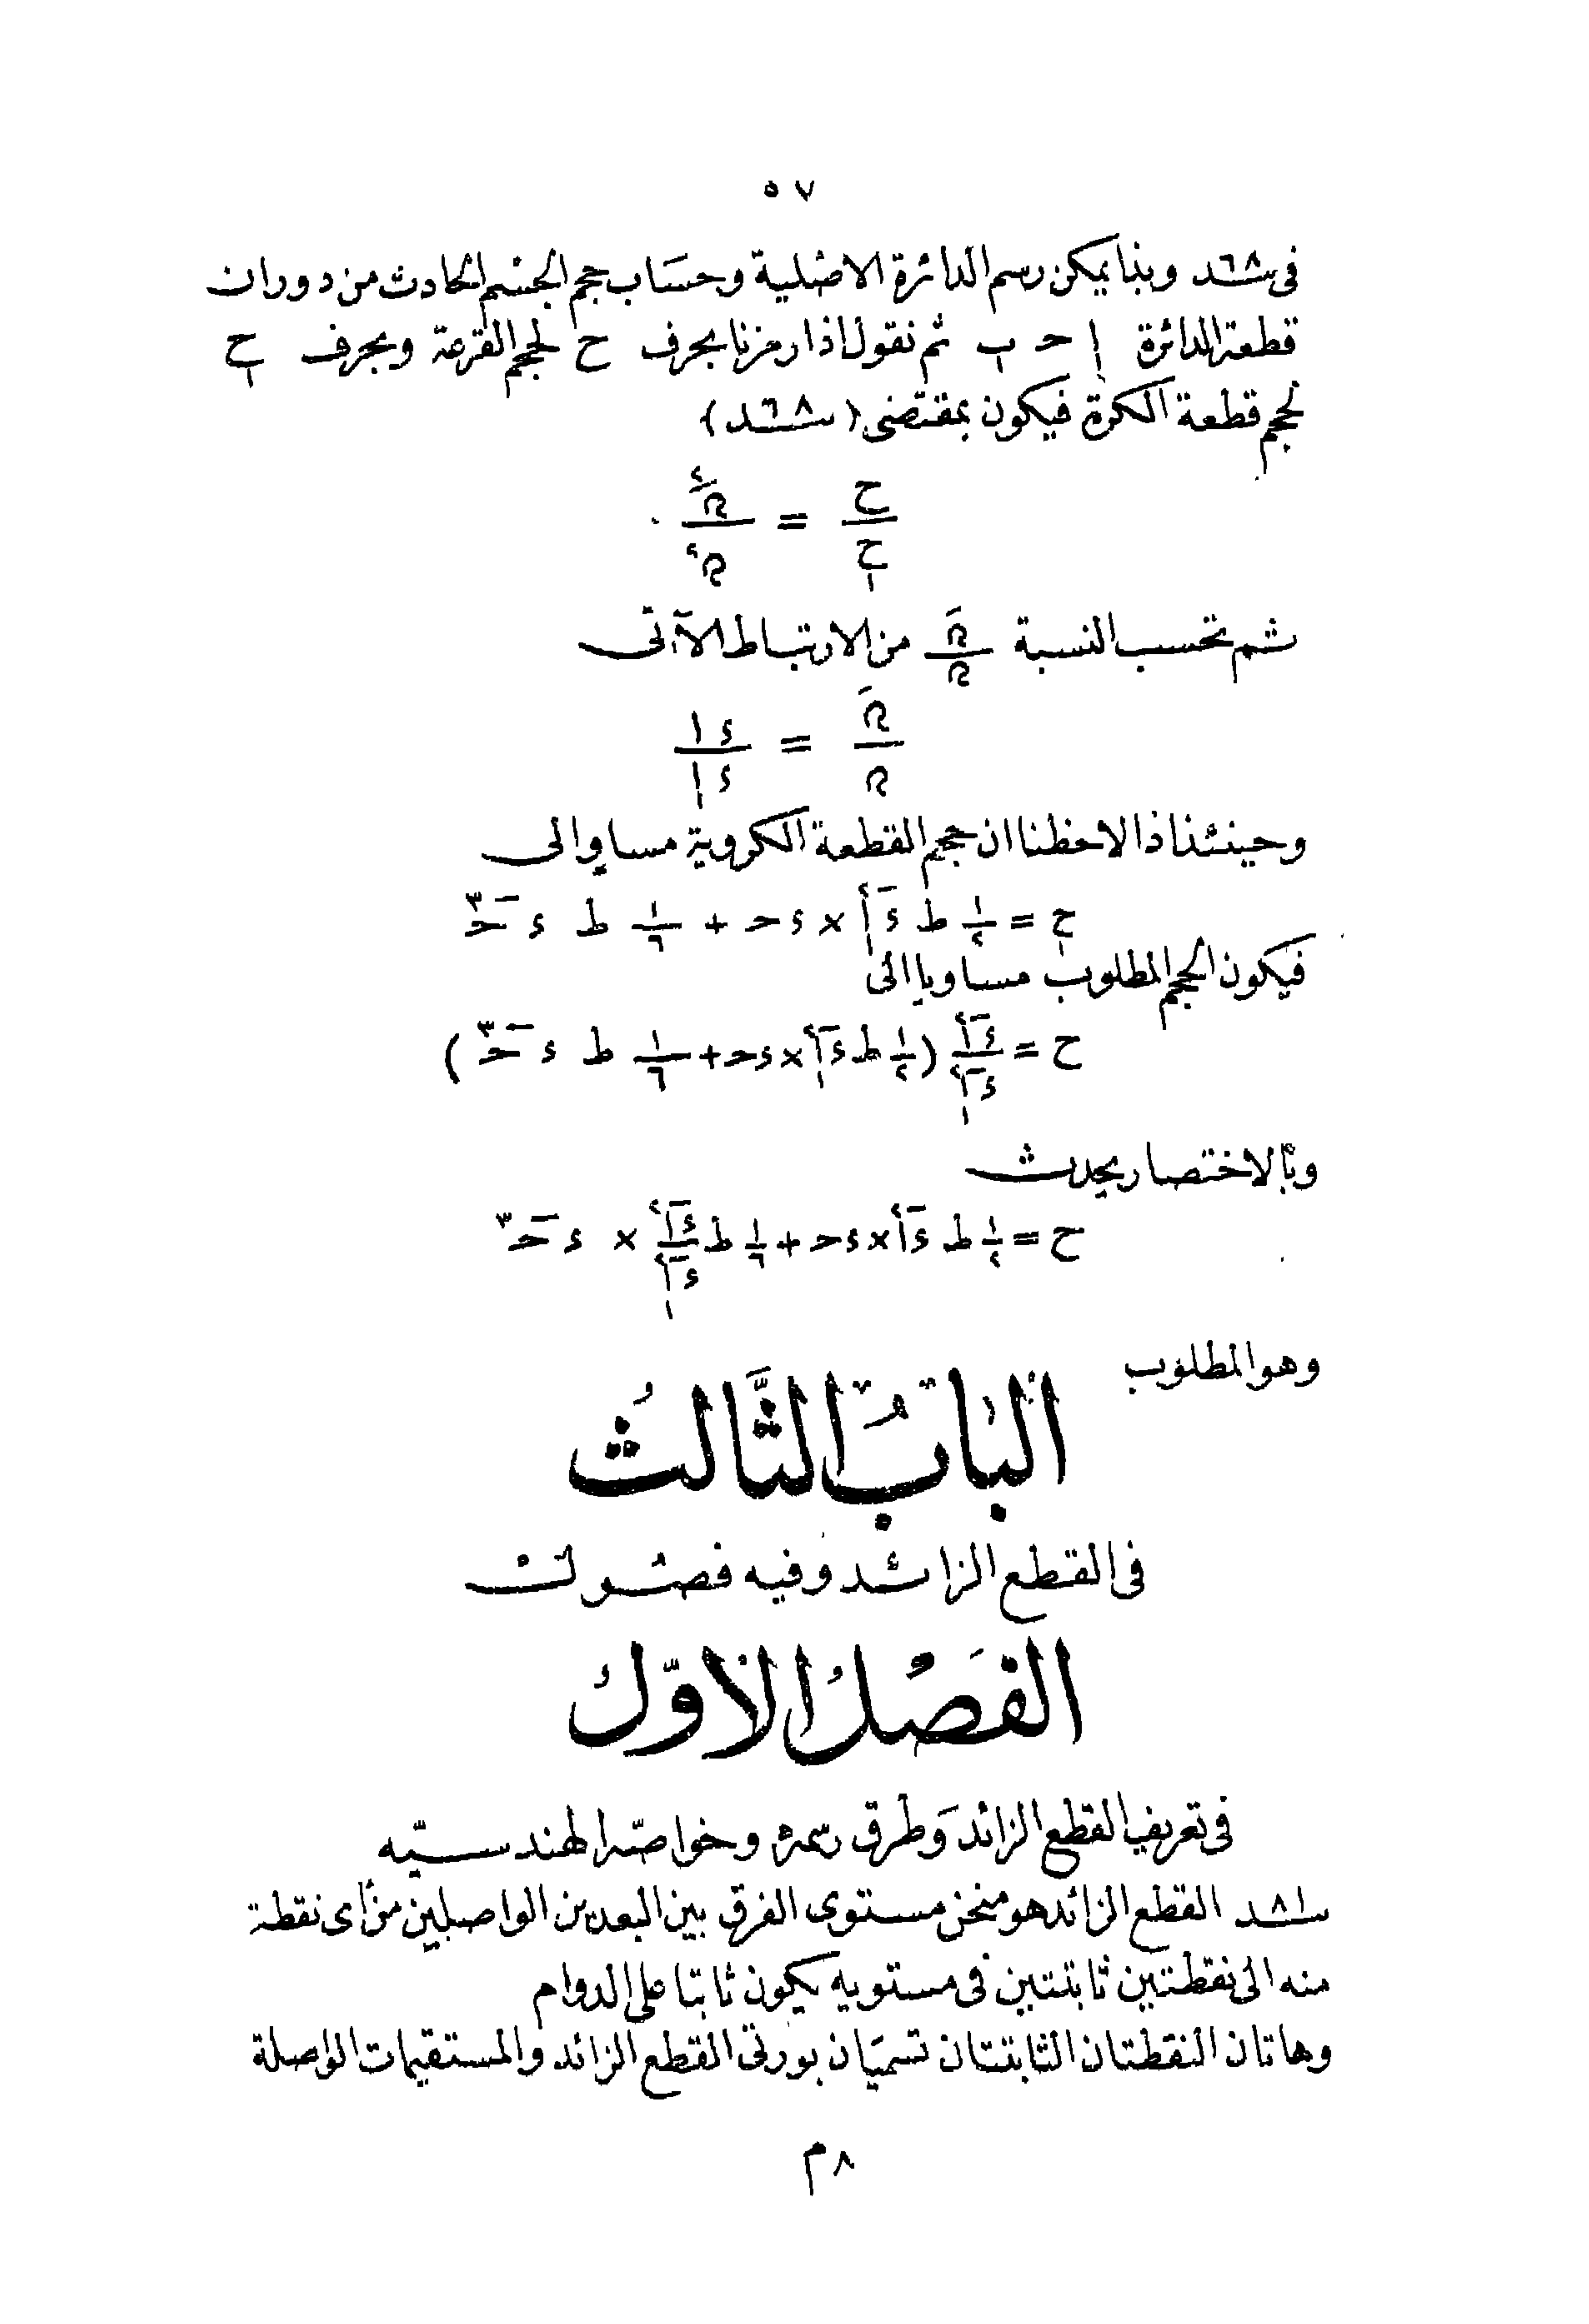 ٥٧
فى سـ٦٨ـند وبذا يمكن رسم الدائرة الاصلية وحساب حجم الجسم الحادث من دوران
قطعة الدائرة ا حـ ب ثم نقول اذا رمزنا بحرف ح لحجم القرعة وبحرف ح١
لحجم قطعة الكرة فيكون بمقتضى (سـ٦٨ـند)
ح/ح١ = هَ٢/ه٢
ثم تحسب النسبة هَ/ه من الارتباط الآتى
هَ/ه = ء ا/ء ا١
وحينئذ اذا لاحظنا ان حجم القطعة الكروية مساو الى
ح١ = ١/٢ ط ء ا١٢ × ء حـ + ١/٦ ط ء حـ٣
فيكون الحجم المطلوب مساويا الى
ح = ء ا٢/ء ا١٢ (١/٢ ط ء ا١٢ × ء حـ + ١/٦ ط ء حـ٣)
وبالاختصار يحدث
ح = ١/٢ ط ء ا٢ × ء حـ + ١/٦ ط ء ا٢/ء ا١٢ × ء حـ٣
وهو المطلوب
الباب الثالث
فى القطع الزائد وفيه فصول
الفصل الاول
فى تعريف القطع الزائد وطرق رسمه وخواصه الهندسيه
سـ٨١ـند القطع الزائد هو منحن مستوى الفرق بين البعدين الواصلين من أى نقطة
منه الى نقطتين ثابتتين فى مستويه يكون ثابتا على الدوام
وهاتان النقطتان الثابتتان تسميان بورتى القطع الزائد والمستقيمات الواصلة
٨ م